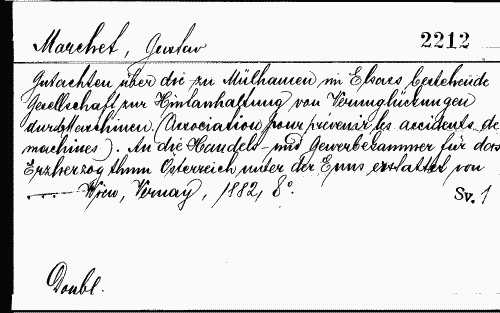 Marchet, Gustav 2212
Gutachten über die zu Mülhausen im Elsass bestehende
Gesellschaft zur Hintanhaltung von Verunglückungen
durch Maschinen. (Association pour prévenir les accidents de
machines). An die Handels- und Gewerbekammer für das
Erzherzogthum Österreich unter der Enns erstattet von
.... — Wien, Vernay, 1882, 8°. Sv. 1
Doubl.